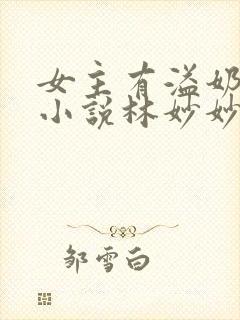 女主有溢奶
小说林妙妙
邹雪白